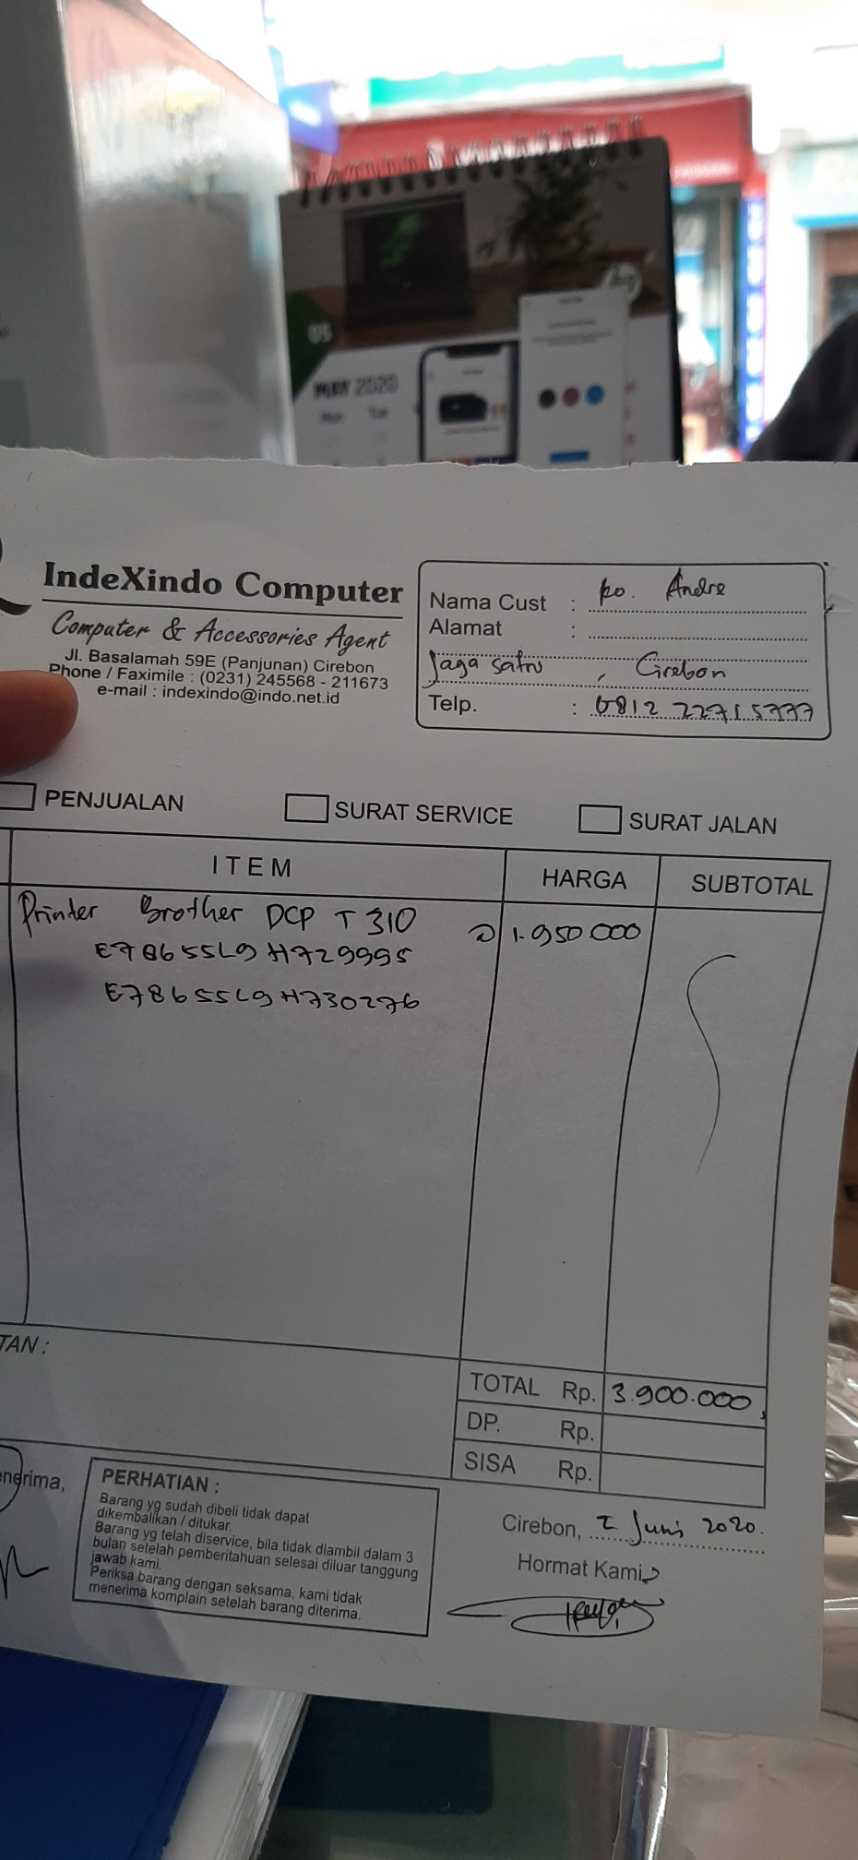 05
MAY 2020
Mon Tue
IndeXindo Computer
Computer & Accessories Agent
Jl. Basalamah 59E (Panjunan) Cirebon
Phone / Faximile : (0231) 245568 - 211673
e-mail : indexindo@indo.net.id
Nama Cust : ko. Andre
Alamat :
Jaga Satru, Cirebon
Telp. : 0812 22715777
PENJUALAN SURAT SERVICE SURAT JALAN
ITEM HARGA SUBTOTAL
Printer Brother DCP T 310 @ 1.950.000
E78655L9H729995
E78655L9H730276
TAN :
TOTAL Rp. 3.900.000,
DP. Rp.
SISA Rp.
nerima,
PERHATIAN :
Barang yg sudah dibeli tidak dapat
dikembalikan / ditukar.
Barang yg telah diservice, bila tidak diambil dalam 3
bulan setelah pemberitahuan selesai diluar tanggung
jawab kami.
Periksa barang dengan seksama, kami tidak
menerima komplain setelah barang diterima.
Cirebon, 2 Juni 2020.
Hormat Kami